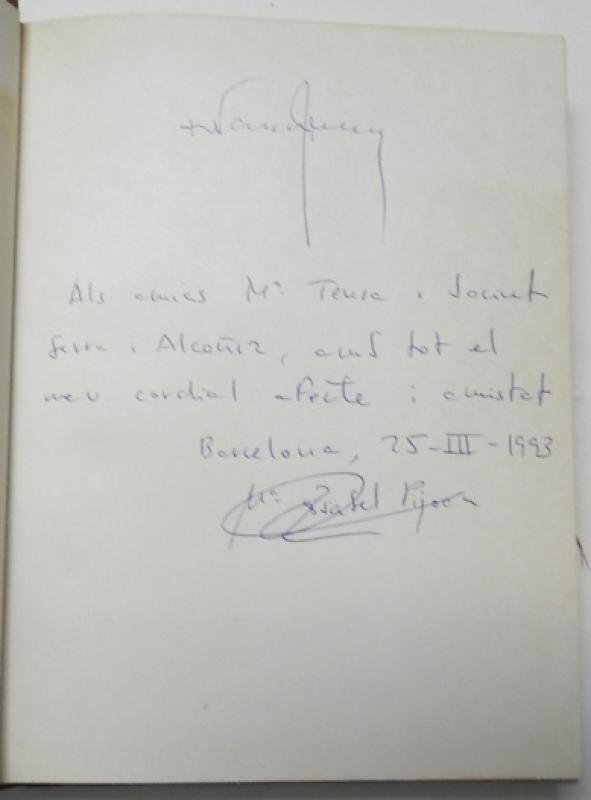 Als amics Mª Teresa i Jacint
Serra i Alcoñiz, amb tot el
meu cordial afecte i amistat
Barcelona, 25-III-1993
Mª Isabel Pijoan